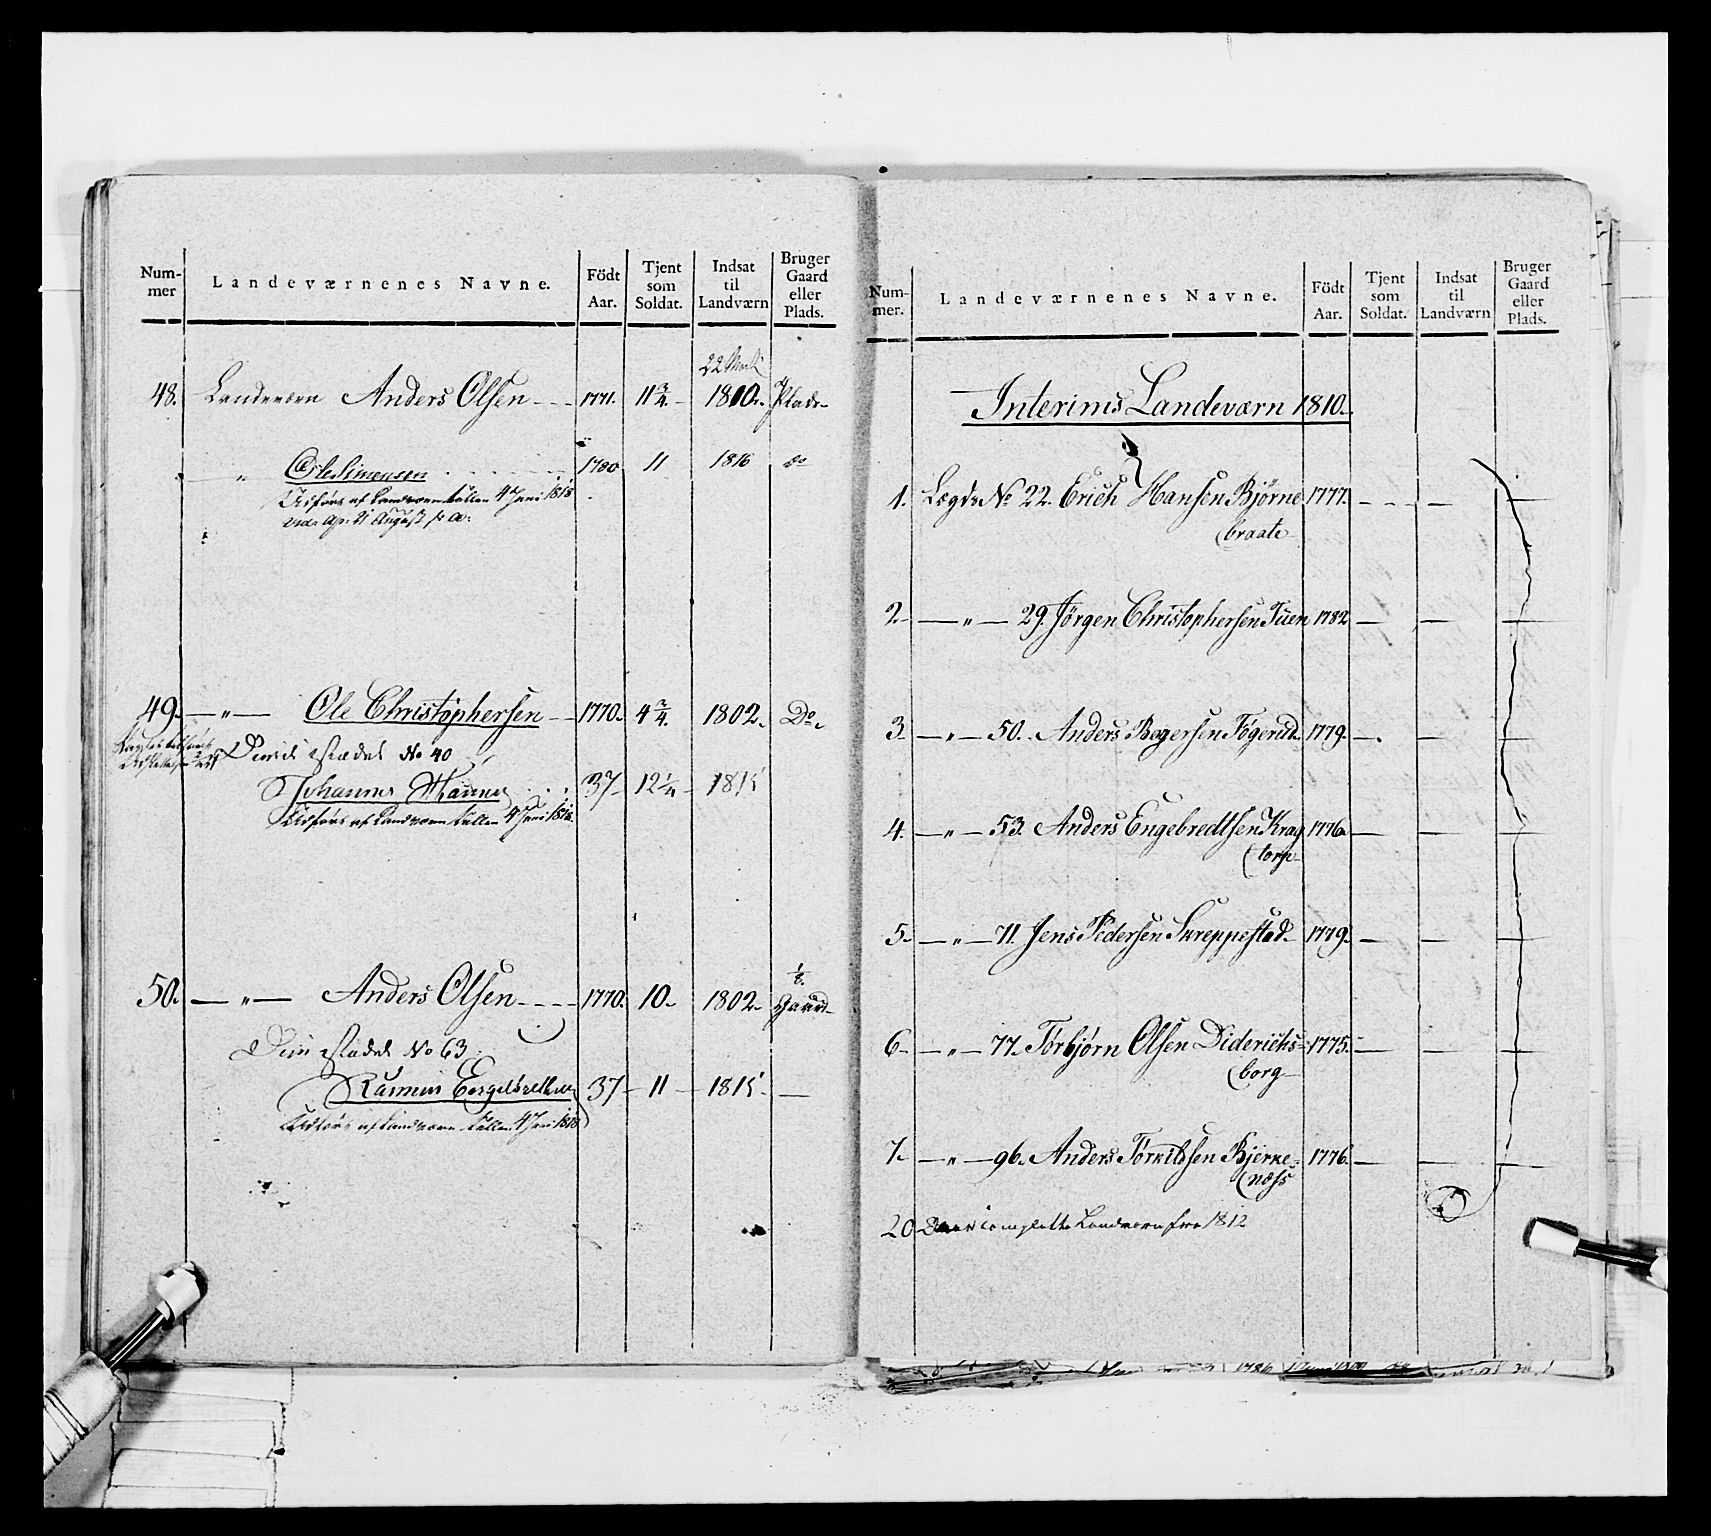 Num-
mer
Landeværnenes Navne.
Födt
Aar.
Tjent
som
Soldat.
Indsat
til
Landværn
Bruger
Gaard
eller
Plads.
22 Mart
48. Landeværn Anders Olsen 1771. 11 3/4. 1810. Plads
" Ole Simensen 1780 11 1816 do
Udføres af Landværn tallen 4 Juni 1818
August
49. — " — Ole Christophersen 1770. 4 3/4. 1802. Do.
stædet No 40
Johannes 37 12 1/4 1815
Udføres af Landværn tallen 4 Juni 1818.
1/2
50. — " — Anders Olsen 1770. 10. 1802. Gaard
stædet No 63
Rasmus Engelbretsen 37 11 1815 —
Udføres af Landværn tallen 4 Juni 1818
Num-
mer.
Landeværnenes Navne.
Födt
Aar.
Tjent
som
Soldat.
Indsat
til
Landværn
Bruger
Gaard
eller
Plads.
Interims Landeværn 1810.
1. Lægds No 22. Erich Hansen Bjørne 1777. — —
braate
2. — " — 29. Jørgen Christophersen Tuen 1782 — — —
3. — " — 50. Anders Bogersen Fögerud 1779. — — —
4. — " — 53. Anders Engebredtsen Krag 1776. — — —
torp
5. — " — 71. Jens Pedersen Sureppestad 1779. — — —
6. — " — 77. Torbjørn Olsen Diderichs- 1775. — — —
borg
7. — " — 96. Anders Torkildsen Bjerke- 1776. — — —
næss
20 complette Landværn fra 1812